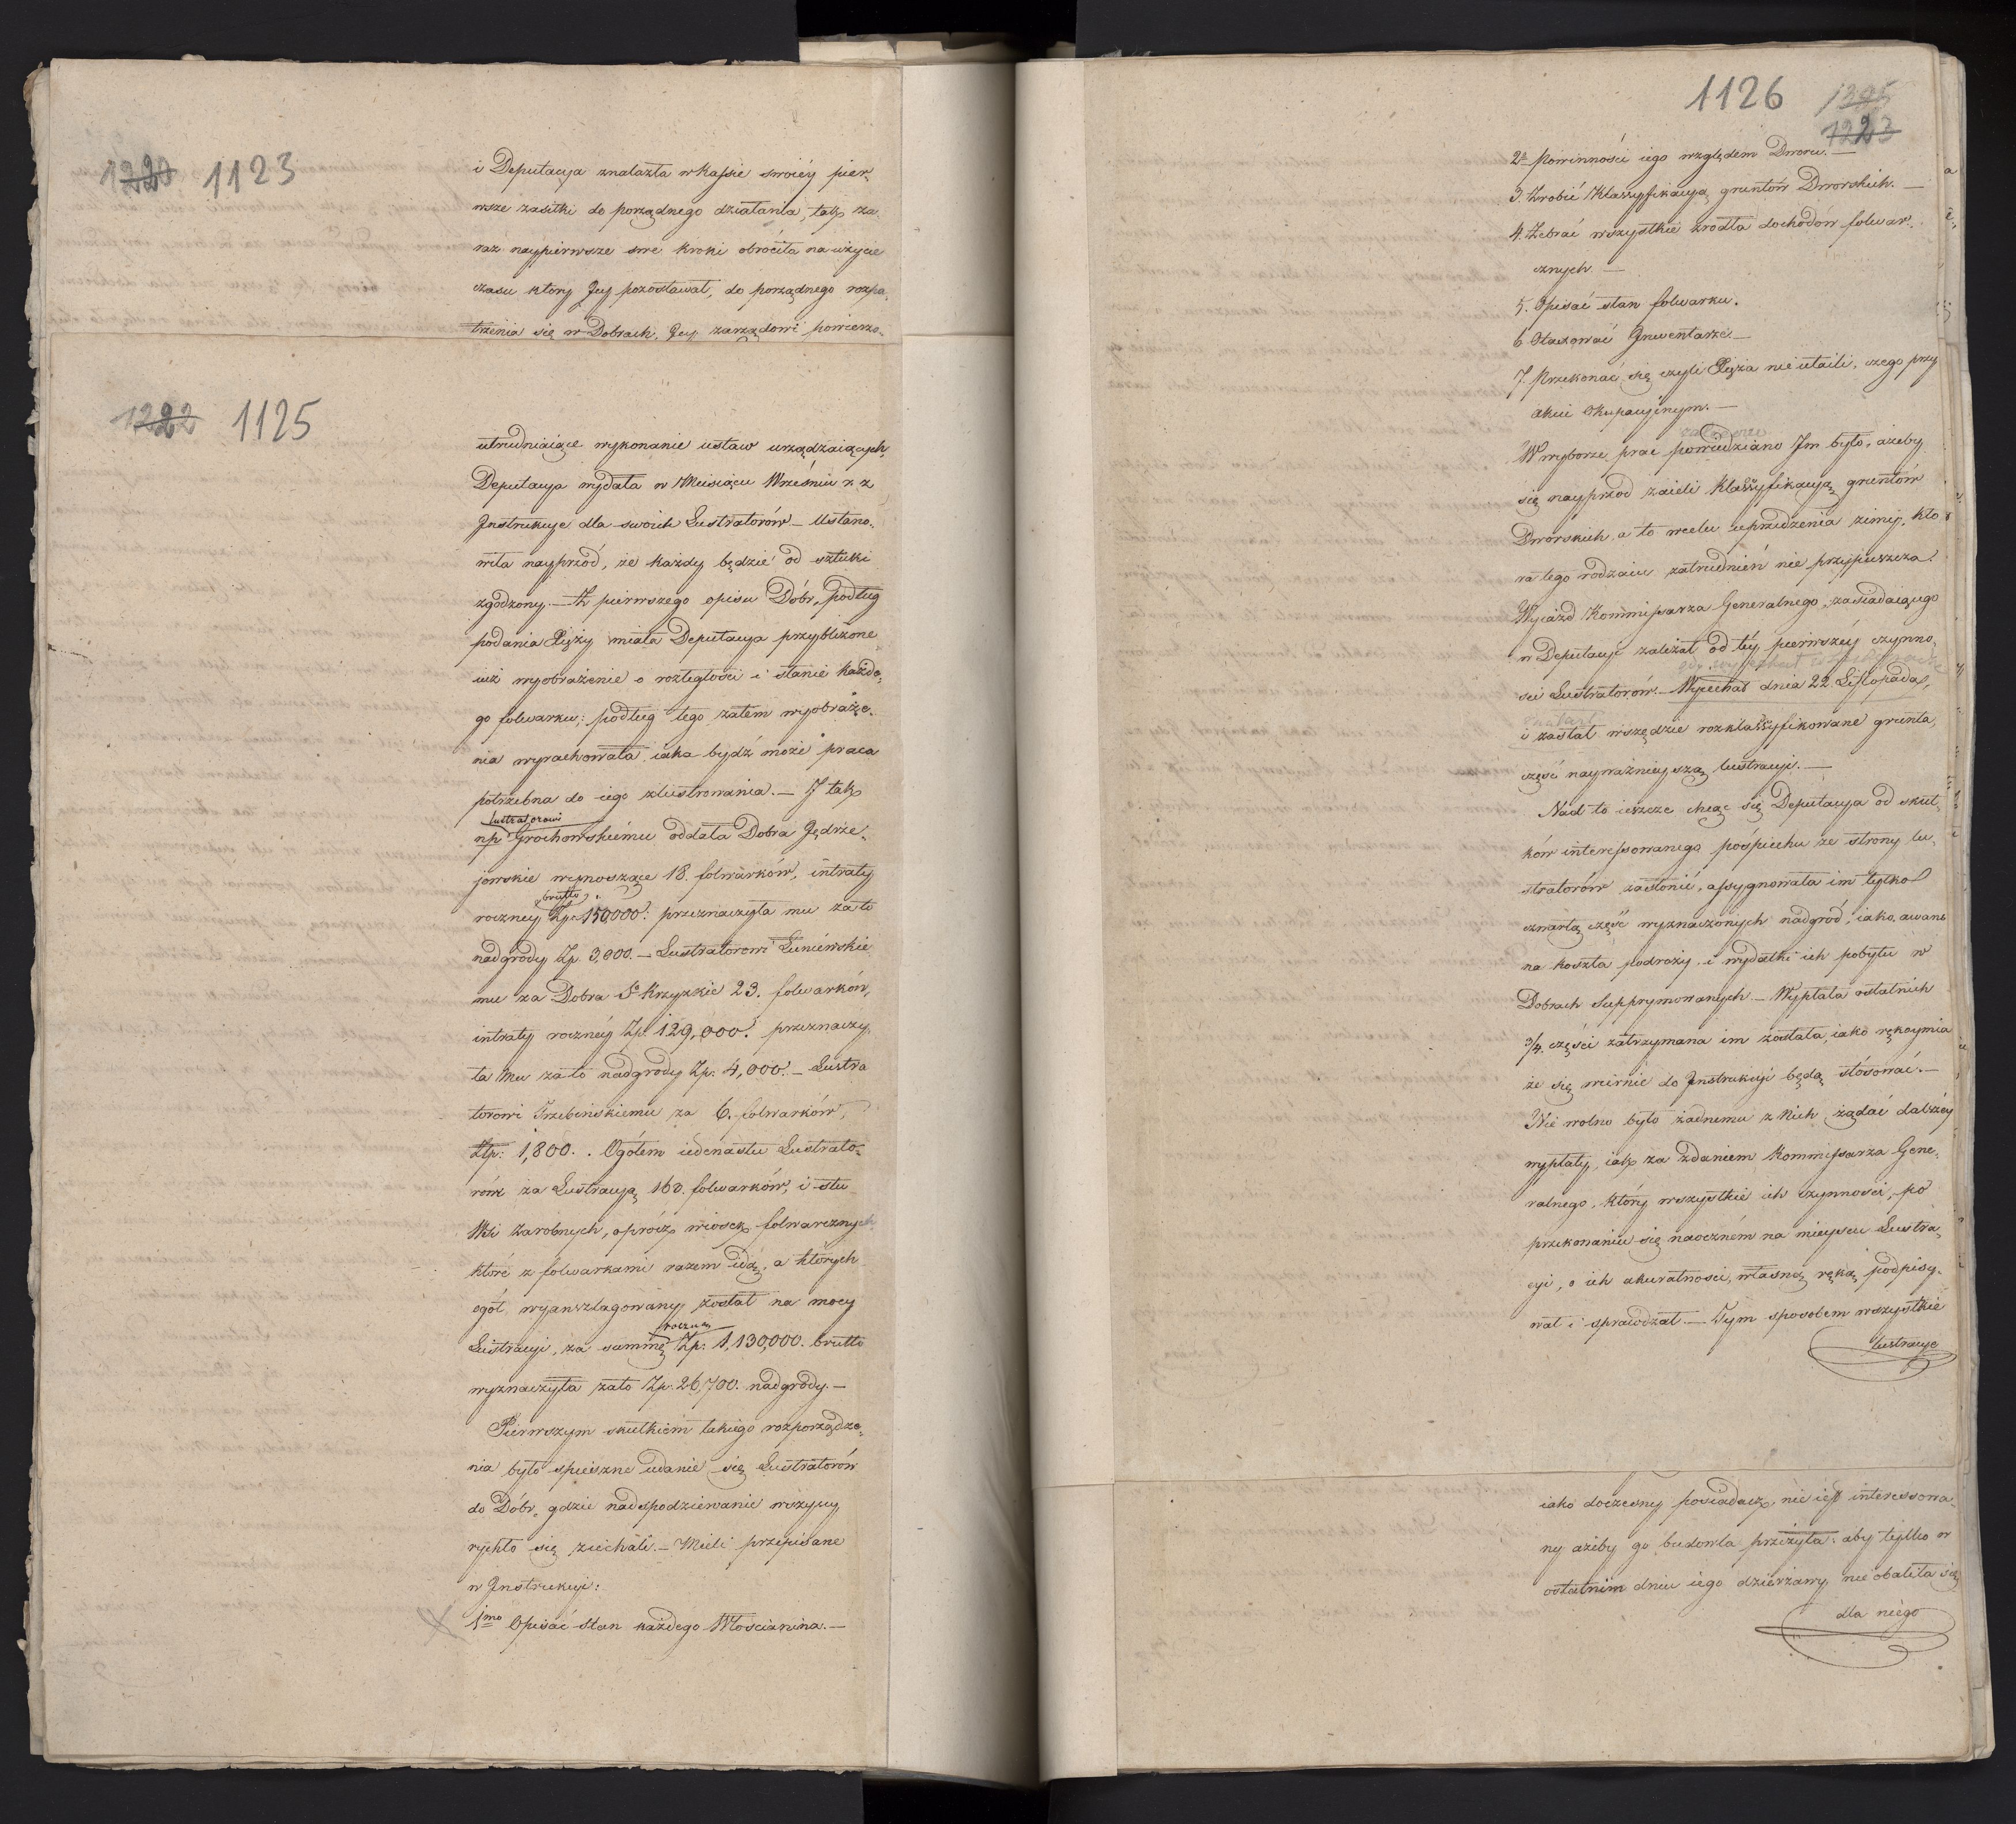 1220 1123
i Deputacya znalazła w Kassie swoiéy pier-
wsze zasiłki do porządnego działania, tak za
raz naypierwsze swe kroki obróciła na użycie
czasu który Jey pozostawał, do porządnego rozpa-
trzenia się w Dobrach, Jey zarządowi powierzo-
1222 1125
utrudniaiące wykonanie ustaw urządzaiących,
Deputacya wydała w Miesiącu Wrześniu r. z
Instrukcye dla swoich Lustratorów – Ustano-
wiła nayprzód, że każdy będzie od sztuki
zgodzony. – Z pierwszego opisu Dóbr, podług
podania Xięży miała Deputacya przybliżone
iuż wyobrażenie o rozległości i stanie każde-
go folwarku; podług tego zatem wyobraże-
nia wyrachowała iaka bydź może praca
potrzebna do iego zlustrowania. – I tak
lustratorowi
np Grochowskiemu oddała Dobra Jędrze-
jowskie wynoszące 18. folwarków, intraty
brutto
roczney Zp. 150,000: przeznaczyła mu za to
nadgrody Zp. 3,000. – Lustratorowi Luniewskie
mu za Dobra St Krzyzkie 23. folwarków,
intraty rocznéy Zp. 129,000. przeznaczy
ła Mu za to nadgrody Zp. 4,000. – Lustra
torowi Trzebińskiemu za 6. folwarków,
Złp: 1,800. . Ogółem iedenastu Lustrato-
rów za Lustracyą 168. folwarków, i stu
Wsi zarobnych, oprócz wiosek folwarcznych
które z folwarkami razem idą, a których
ogół wyanszlagowany został na mocy
roczną
Lustracyi, za summę Zp. 1,130,000. brutto
wyznaczyła zato Zp. 26,700. nadgrody. –
Pierwszym skutkiem takiego rozporządze-
nia było spieszne udanie się Lustratorów
do Dóbr, gdzie nadspodziewanie wszyscy
rychło się ziechali. – Mieli przepisane
w Instrukcyi:
1mo Opisać stan każdego Włościanina. –
1126 1395
1223
2e Powinności iego względem Dworu. –
3. Zrobić Klassyfikacyą gruntów Dworskich. –
4. Zebrać wszystkie zrodła dochodów folwar-
cznych. –
5. Opisać stan folwarku.
6 Otaxować Inwentarze. –
7. Przekonać się czyli Xięża nie utaili, czego przy
akcie Okupacyjnym. –
W wyborze prac powiedziano Im było, ażeby
się nayprzod zaieli klassyfikacyą gruntów
Dworskich, a to w celu uprzedzenia zimy, któ
ra tego rodzaiu zatrudnień nie przypuszcza.
Wyiazd Kommissarza Generalnego, zasiadaiącego
w Deputacyi zależał od téy pierwszéy czynno-
ści Lustratorów. – Wyiechał dnia 22. Listopada,
znalazł
i zastał wszędzie rozklassyfikowane grunta,
część nayważnieyszą lustracyi. –
Nad to ieszcze chcąc się Deputacya od skut-
ków interessowanego pośpiechu ze strony lu-
stratorów zasłonić, assygnowała im tylko
czwartą część wyznaczonych nadgród, iako awans
na koszta podroży i wydatki ich pobytu w
Dobrach Supprymowanych. – Wypłata ostatnich
3/4. części zatrzymana im została, iako rękoymia
że się wiernie do Instrukcyi będą stósować. –
Nie wolno było żadnemu z Nich żądać dalszéy
wypłaty, iak za zdaniem Kommissarza Gene-
ralnego, który wszystkie ich czynności, po
przekonaniu się naoczném na mieyscu Lustra-
cyi, o ich akuratności, własną ręką podpisy-
wał i sprawdzał. – Tym sposobem wszystkie
lustracye
iako doczesny posiadacz, nie iest interessowa-
ny ażeby go budowla przeżyła: aby tylko w
ostatnim dniu iego dzierżawy nie obaliła się
dla niego